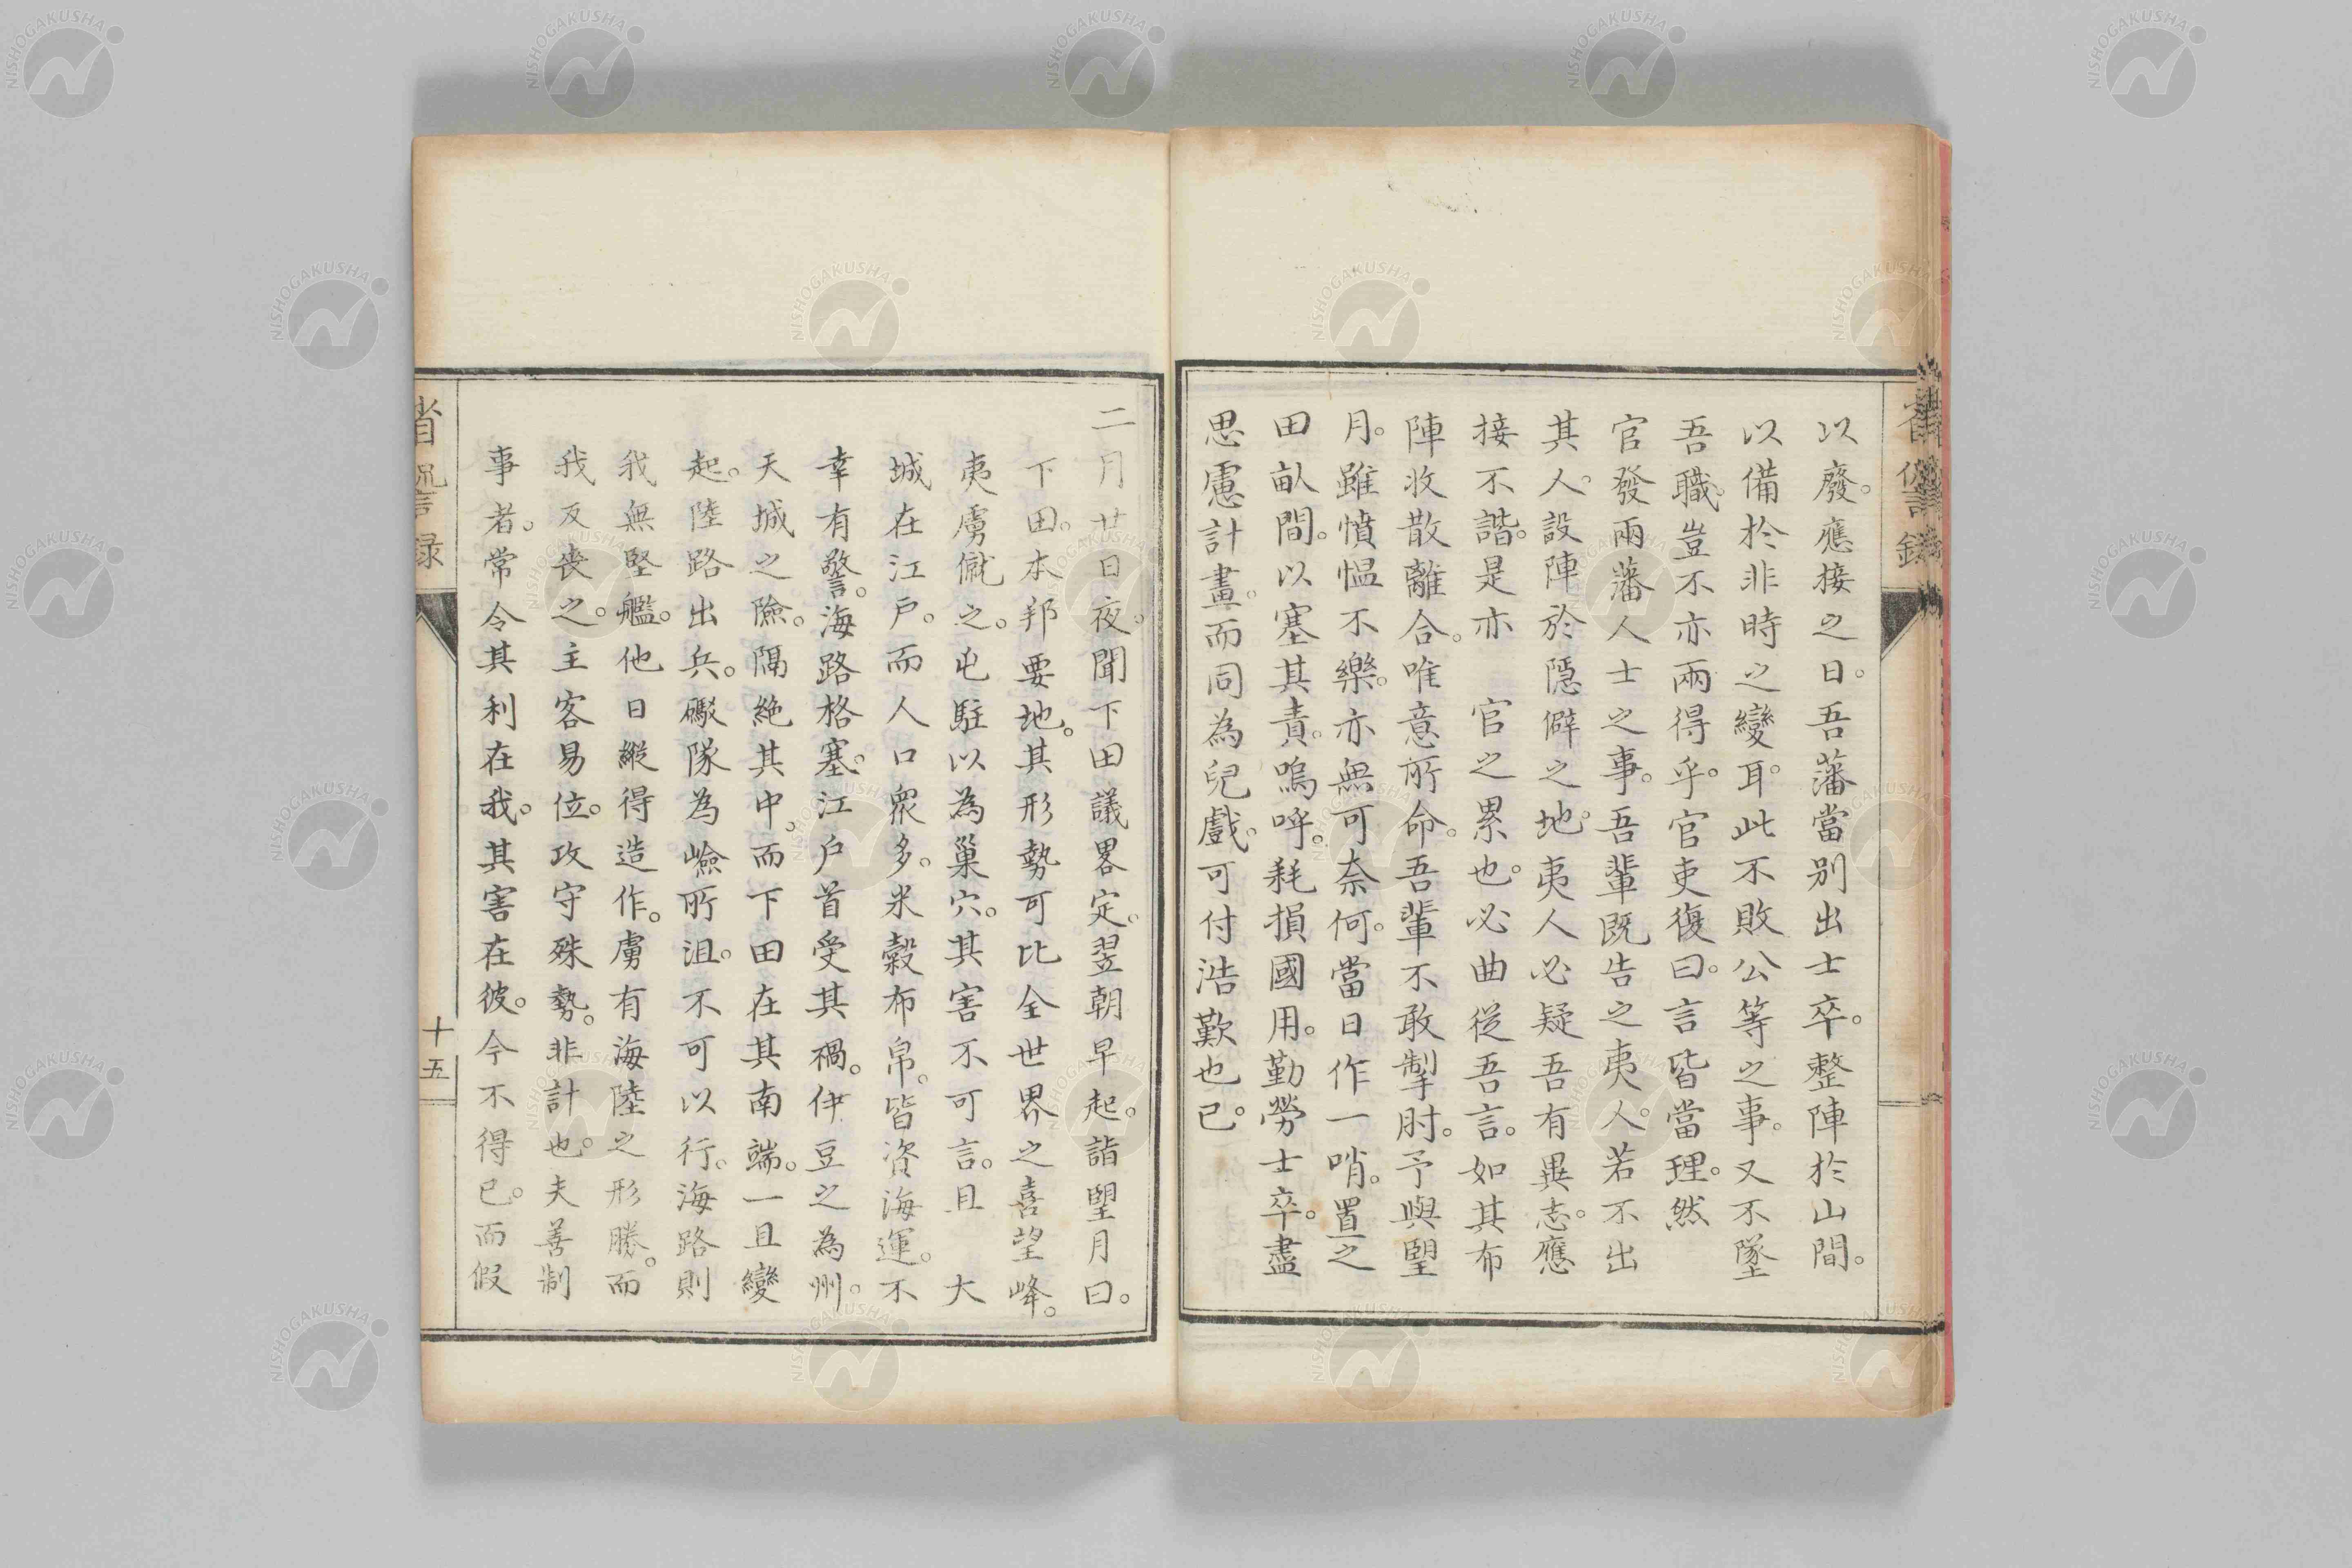 以廢。應接之日。吾藩當別出士卒。整陣於山間。
以備於非時之變耳。此不敗公等之事。又不墜
吾職。豈不亦兩得乎。官吏復曰。言皆當理。然
官發兩藩人士之事。吾輩既告之夷人。若不出
其人。設陣於隱僻之地。夷人必疑吾有異志。應
接不諧。是亦 官之累也。必曲從吾言。如其布
陣收散離合。唯意所命。吾輩不敢掣肘。予與望
月。雖憤愠不樂。亦無可奈何。當日作一哨。置之
田畝間。以塞其責。嗚呼。耗損國用。勤勞士卒。盡
思慮計畫。而同為兒戲。可付浩歎也已。
二月廿日夜。聞下田議畧定。翌朝早起。詣望月曰。
下田。本邦要地。其形勢可比全世界之喜望峰。
夷虜僦之。屯駐以為巢穴。其害不可言。且 大
城在江戶。而人口衆多。米穀布帛。皆資海運。不
幸有警。海路格塞。江戶首受其禍。伊豆之為州。
天城之險。隔絶其中。而下田在其南端。一旦變
起。陸路出兵。礮隊為嶮所沮。不可以行。海路則
我無堅艦。他日縱得造作。虜有海陸之形勝。而
我反喪之。主客易位。攻守殊勢。非計也。夫善制
事者。常令其利在我。其害在彼。今不得已。而假
省諐録
十五
NISHOGAKUSHA